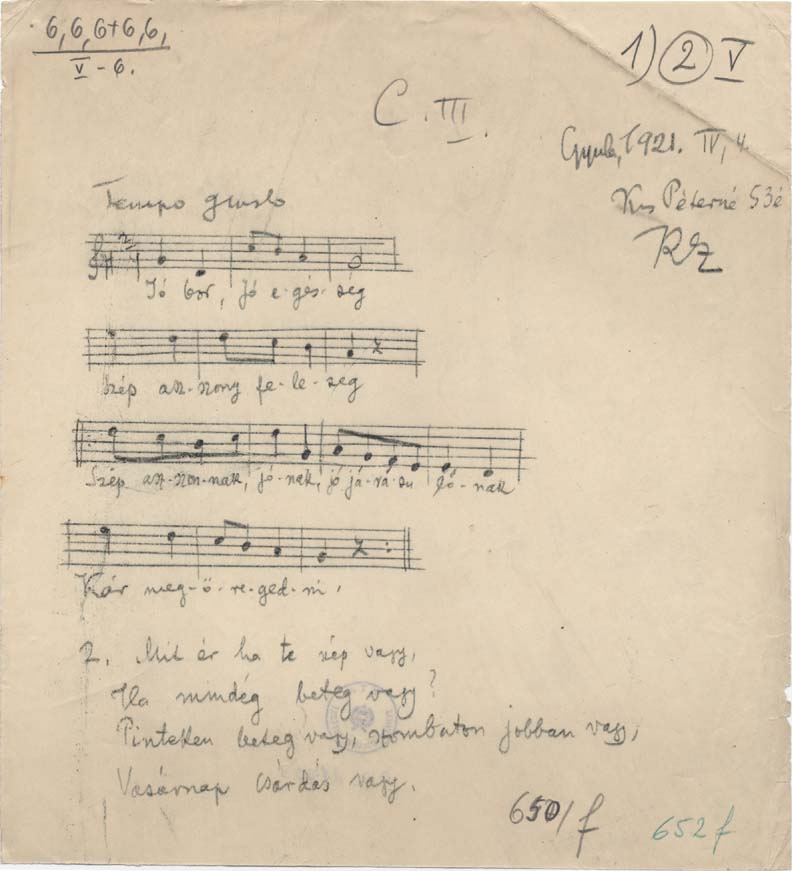 6, 6, 6+6, 6,
V – 6.
1) 2 V
C. III.
Gyula, 1921. IV, 4.
Kis Péterné 53é
Tempo giusto
Jó bor, jó e-gés-ség
Szép asz-szony fe-le-ség
Szép asz-szon-nak, jó-nak, jó já-rá-su ló-nak
Kár meg-ö-re-ged-ni,
2. Mit ér ha te szép vagy,
Ha mindég beteg vagy?
Pinteken beteg vagy, szombaton jobban vagy,
Vasárnap csárdás vagy.
650/f
652 f